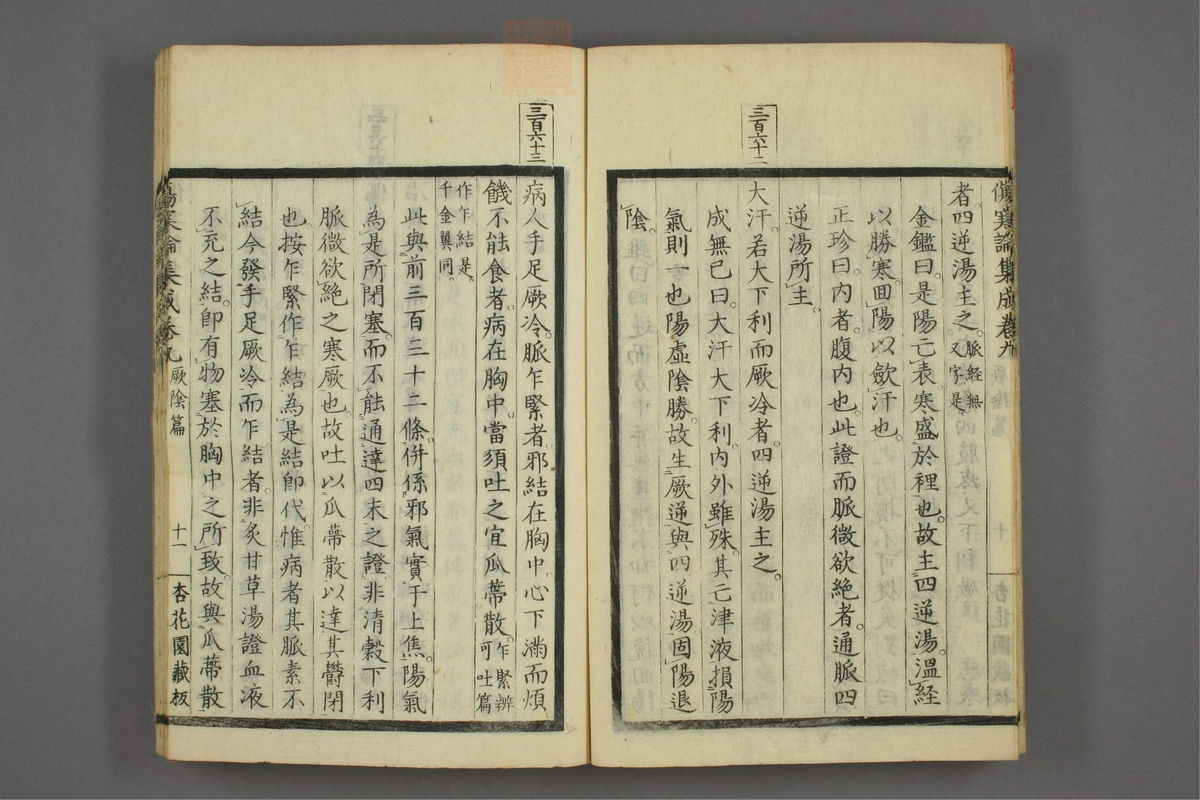 傷寒論集成卷九
者四逆湯主之。脈經無
又字是。
金鑑曰。是陽亡表。寒盛於裡也。故主四逆湯。溫經
以勝寒。囬陽以斂汗也。
正珍曰。内者。腹内也。此證而脈微欲絶者。通脈四
逆湯所主。
三百六十二
大汗。若大下利而厥冷者。四逆湯主之。
成無己曰。大汗大下利。内外雖殊。其亡津液損陽
氣則一也。陽虛陰勝。故生厥逆。與四逆湯固陽退
陰。
三百六十三
病人手足厥冷。脈乍緊者。邪結在胸中。心下滿而煩
饑不能食者。病在胸中。當須吐之。宜瓜蒂散。乍緊。辨
可吐篇
作乍結。是。
千金翼同。
此與前三百三十二條。併係邪氣實于上焦。陽氣
為是所閉塞。而不能通達四末之證。非清穀下利
脈微欲絶之寒厥也。故吐以瓜蒂散。以達其鬱閉
也。按乍緊作乍結。為是。結卽代。惟病者其脈素不
結。今發手足厥冷而乍結者。非炙甘草湯證血液
不充之結。卽有物塞於胸中之所致。故與瓜蒂散
傷寒論集成卷九 厥陰篇 十一 杏花園藏板